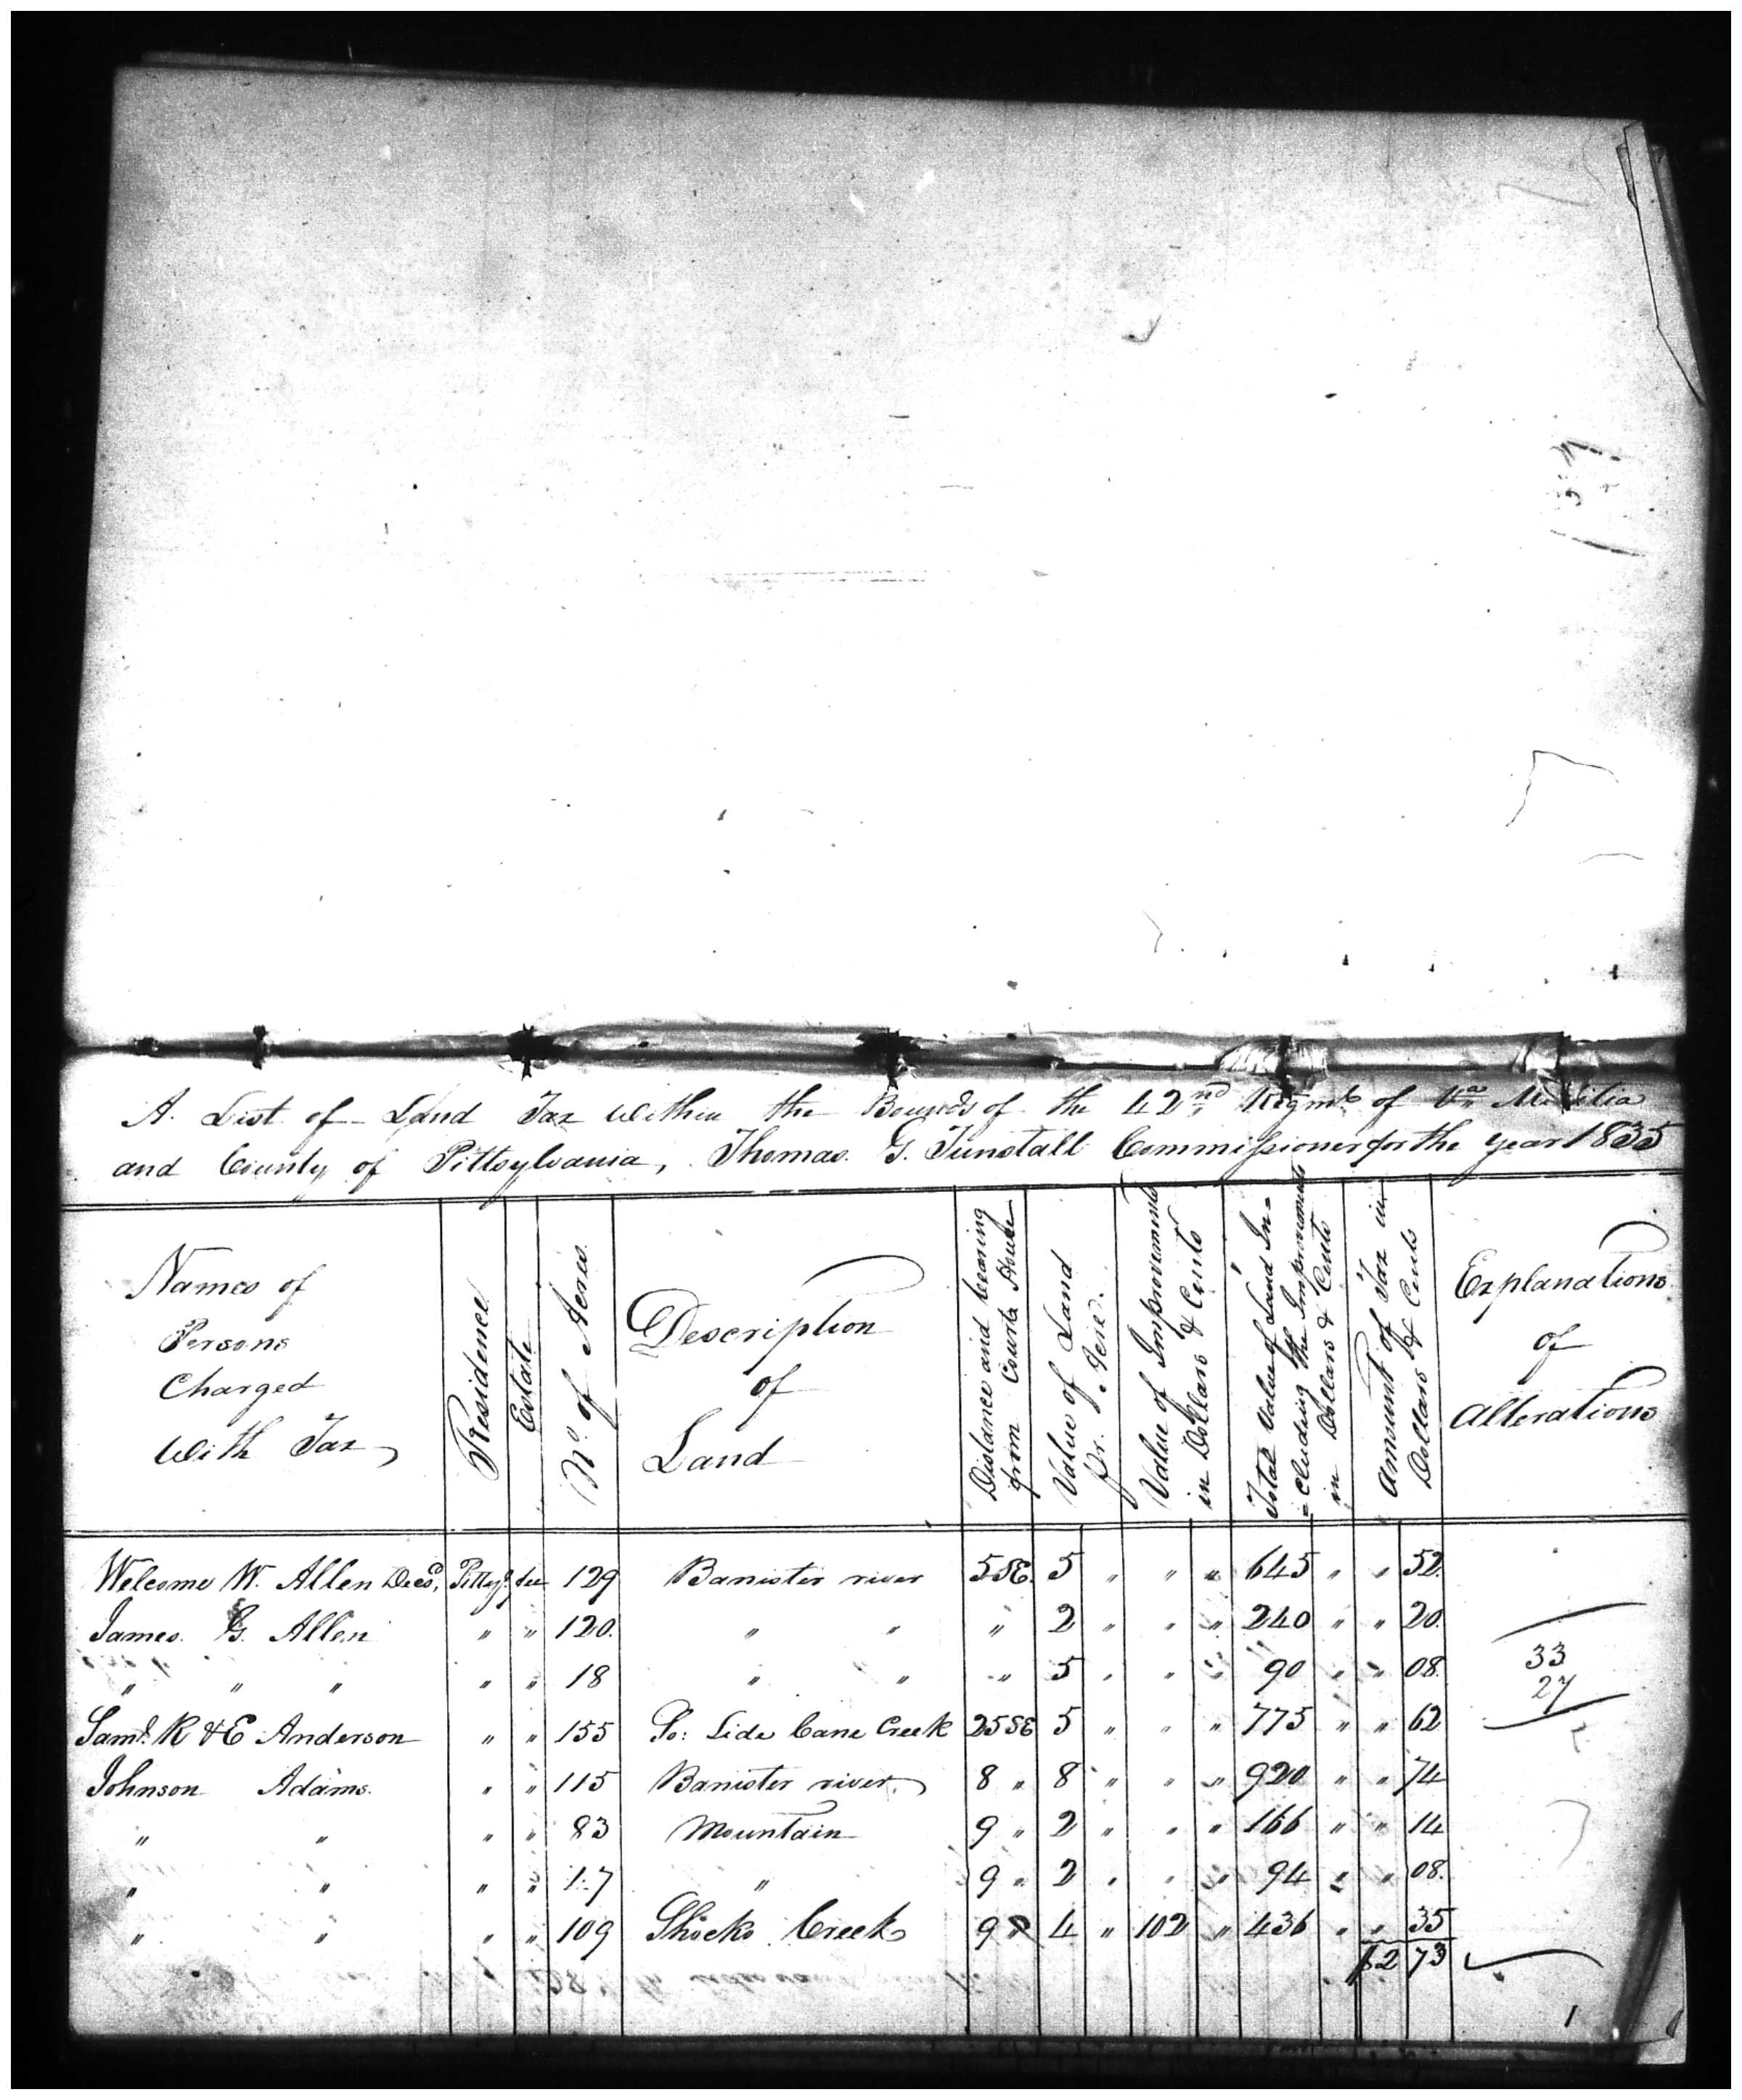 A. List of Land Tax within the Bounds of the 42nd Regmt. of Va. Militia
and County of Pittsylvania, Thomas. G. Tunstall Commissioner for the year 1835
Names of
Persons
Charged
With Tax
Residence
Estate
No. of Acres.
Description
of
Land
Distance and bearing
from Court House
Value of Land
pr. Acre.
Value of Improvements
in Dollars & Cents
Total Value of Land In=
=cluding the Improvements
in Dollars & Cents
Amount of Tax in
Dollars & Cents
Explanations
of
Alterations
Welcome W. Allen Decd, Pittsya. fee 129 Banister river 5 SE. 5 " " " 645 " " 52.
James. G. Allen " " 120. " " " 2 " " " 240 " " 20.
" " " " " 18 " " " 5 " " " 90 " " 08. 33
27
Saml. R & E Anderson " " 155 So: Side Cane Creek 25 SE 5 " " " 775 " " 62
Johnson Adams. " " 115 Banister river 8 " 8 " " " 920 " " 74
" " " " 83 Mountain 9 " 2 " " " 166 " " 14
" " " " " 9 " 2 " " " 94 " " 08.
" " " " 109 Shocko Creek 9 4 " 102 " 436 " " 35
$2 73
1